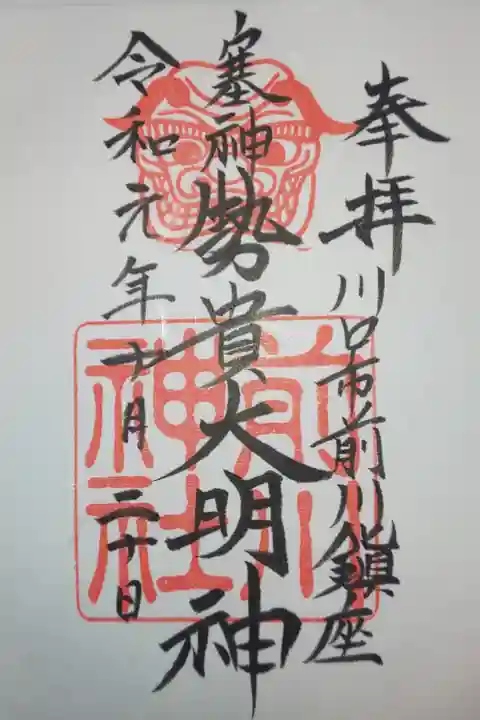 奉拝
川口市前川鎮座
塞神
勢貴大明神
令和元年十月二十日
前川
神社